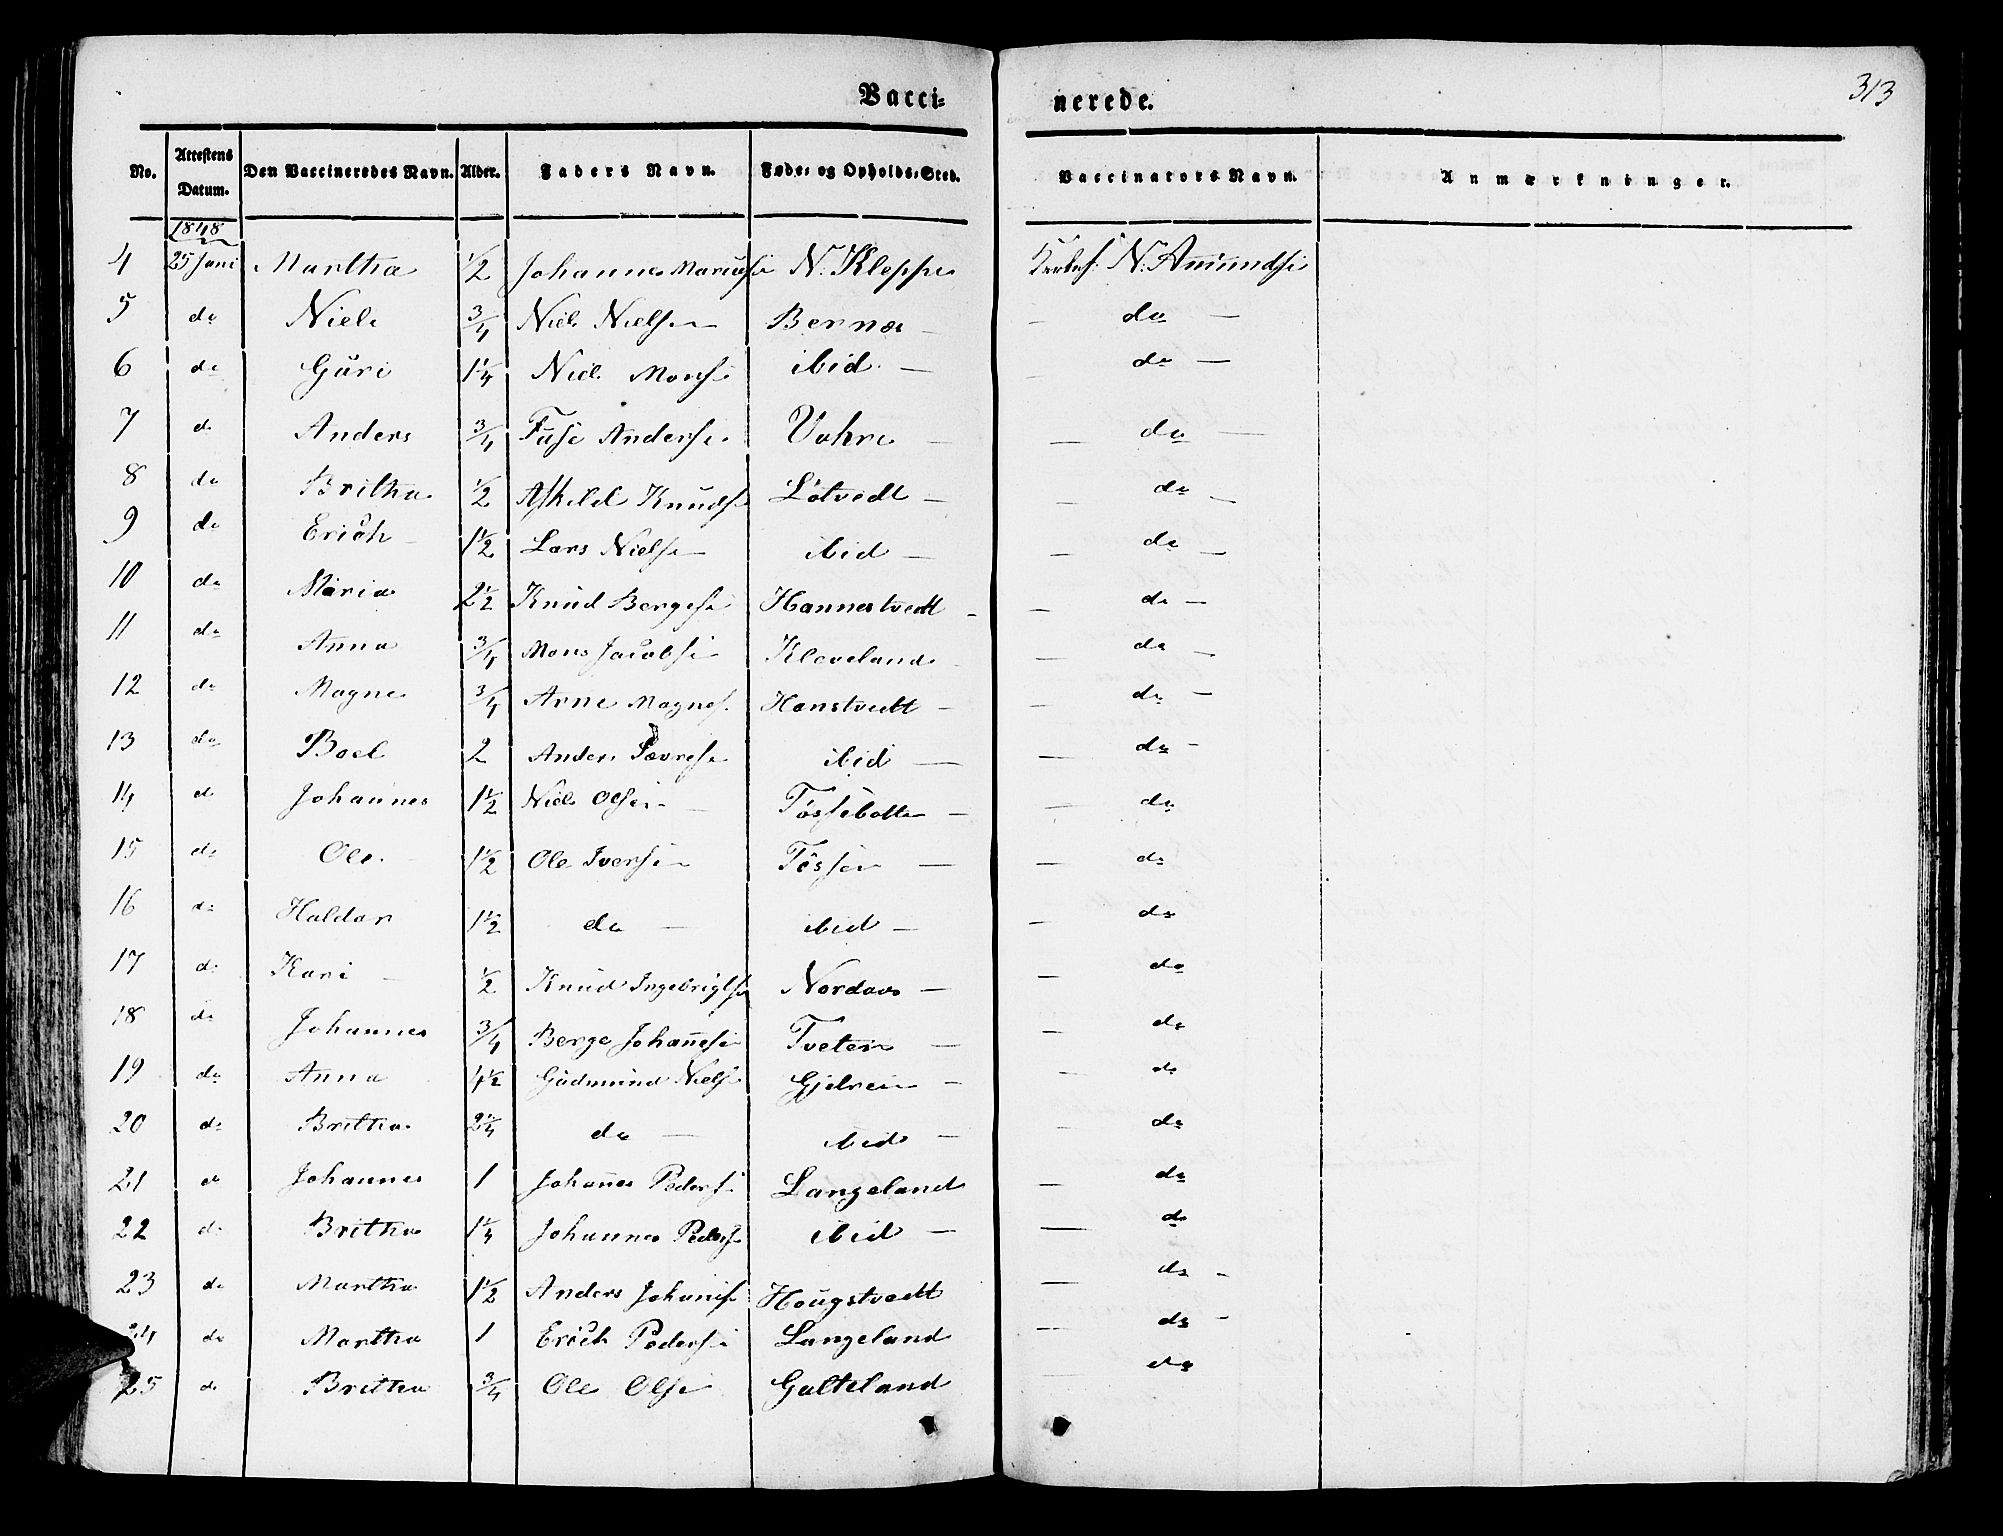 Vacci=
nerede.
313
No. Attestens Datum. Den Vaccineredes Navn. Alder. Faders Navn. Føde= og Opholds=Sted. Vaccinators Navn. Anmærkninger.
1848
4 25 Juni Martha ½ Johannes N. Kleppe N. Amundsn
5 do Niels ¾ Niels Nielsen Bernæs — do —
6 do Guri 1¼ Niels Monsn ibid. — do —
7 do Anders ¾ Fuse Andersn Vahre — do —
8 do Britha ½ Askild Knuds Løtvedt — do —
9 do Erich 1½ Lars Nielsn ibid — do —
10 do Maria 2½ Knud Bergesn Hannestvedt — do —
11 do Anna ¾ Mons Jacobsn Kleveland — do —
12 do Magne ¾ Arne Magnes. Hanstvedt — do —
13 do Boel 2 Anders ibid — do —
14 do Johannes 1½ Niels Olsen Tøssebotten — do
15 do Ole 1½ Ole Iversen Tøssen — do
16 do Haldor 1½ do — ibid — do
17 do Kari ½ Knud Ingebrigtsn Nordaas — do
18 do Johannes ¾ Berge Johañesn Tveten — do
19 do Anna 4½ Gudmund Niels Gjelvein — do
20 do Britha 2¼ do — ibid — do
21 do Johannes 1 Johañes Pedersn Langeland — do
22 do Britha 1¼ Johannes Peders ibid — do
23 do Martha 1½ Anders Johanes Hougstvedt — do —
24 do Martha 1 Erich Pedersn Langeland — do —
25 do Britha ¾ Ole Olsn Galteland — do